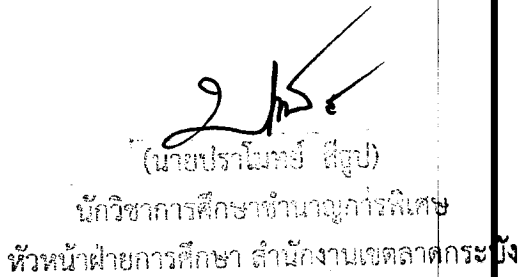 (นายปราโมทย์ สีรูป)
นักวิชาการศึกษาชำนาญการพิเศษ
หัวหน้าฝ่ายการศึกษา สำนักงานเขตลาดกระบัง